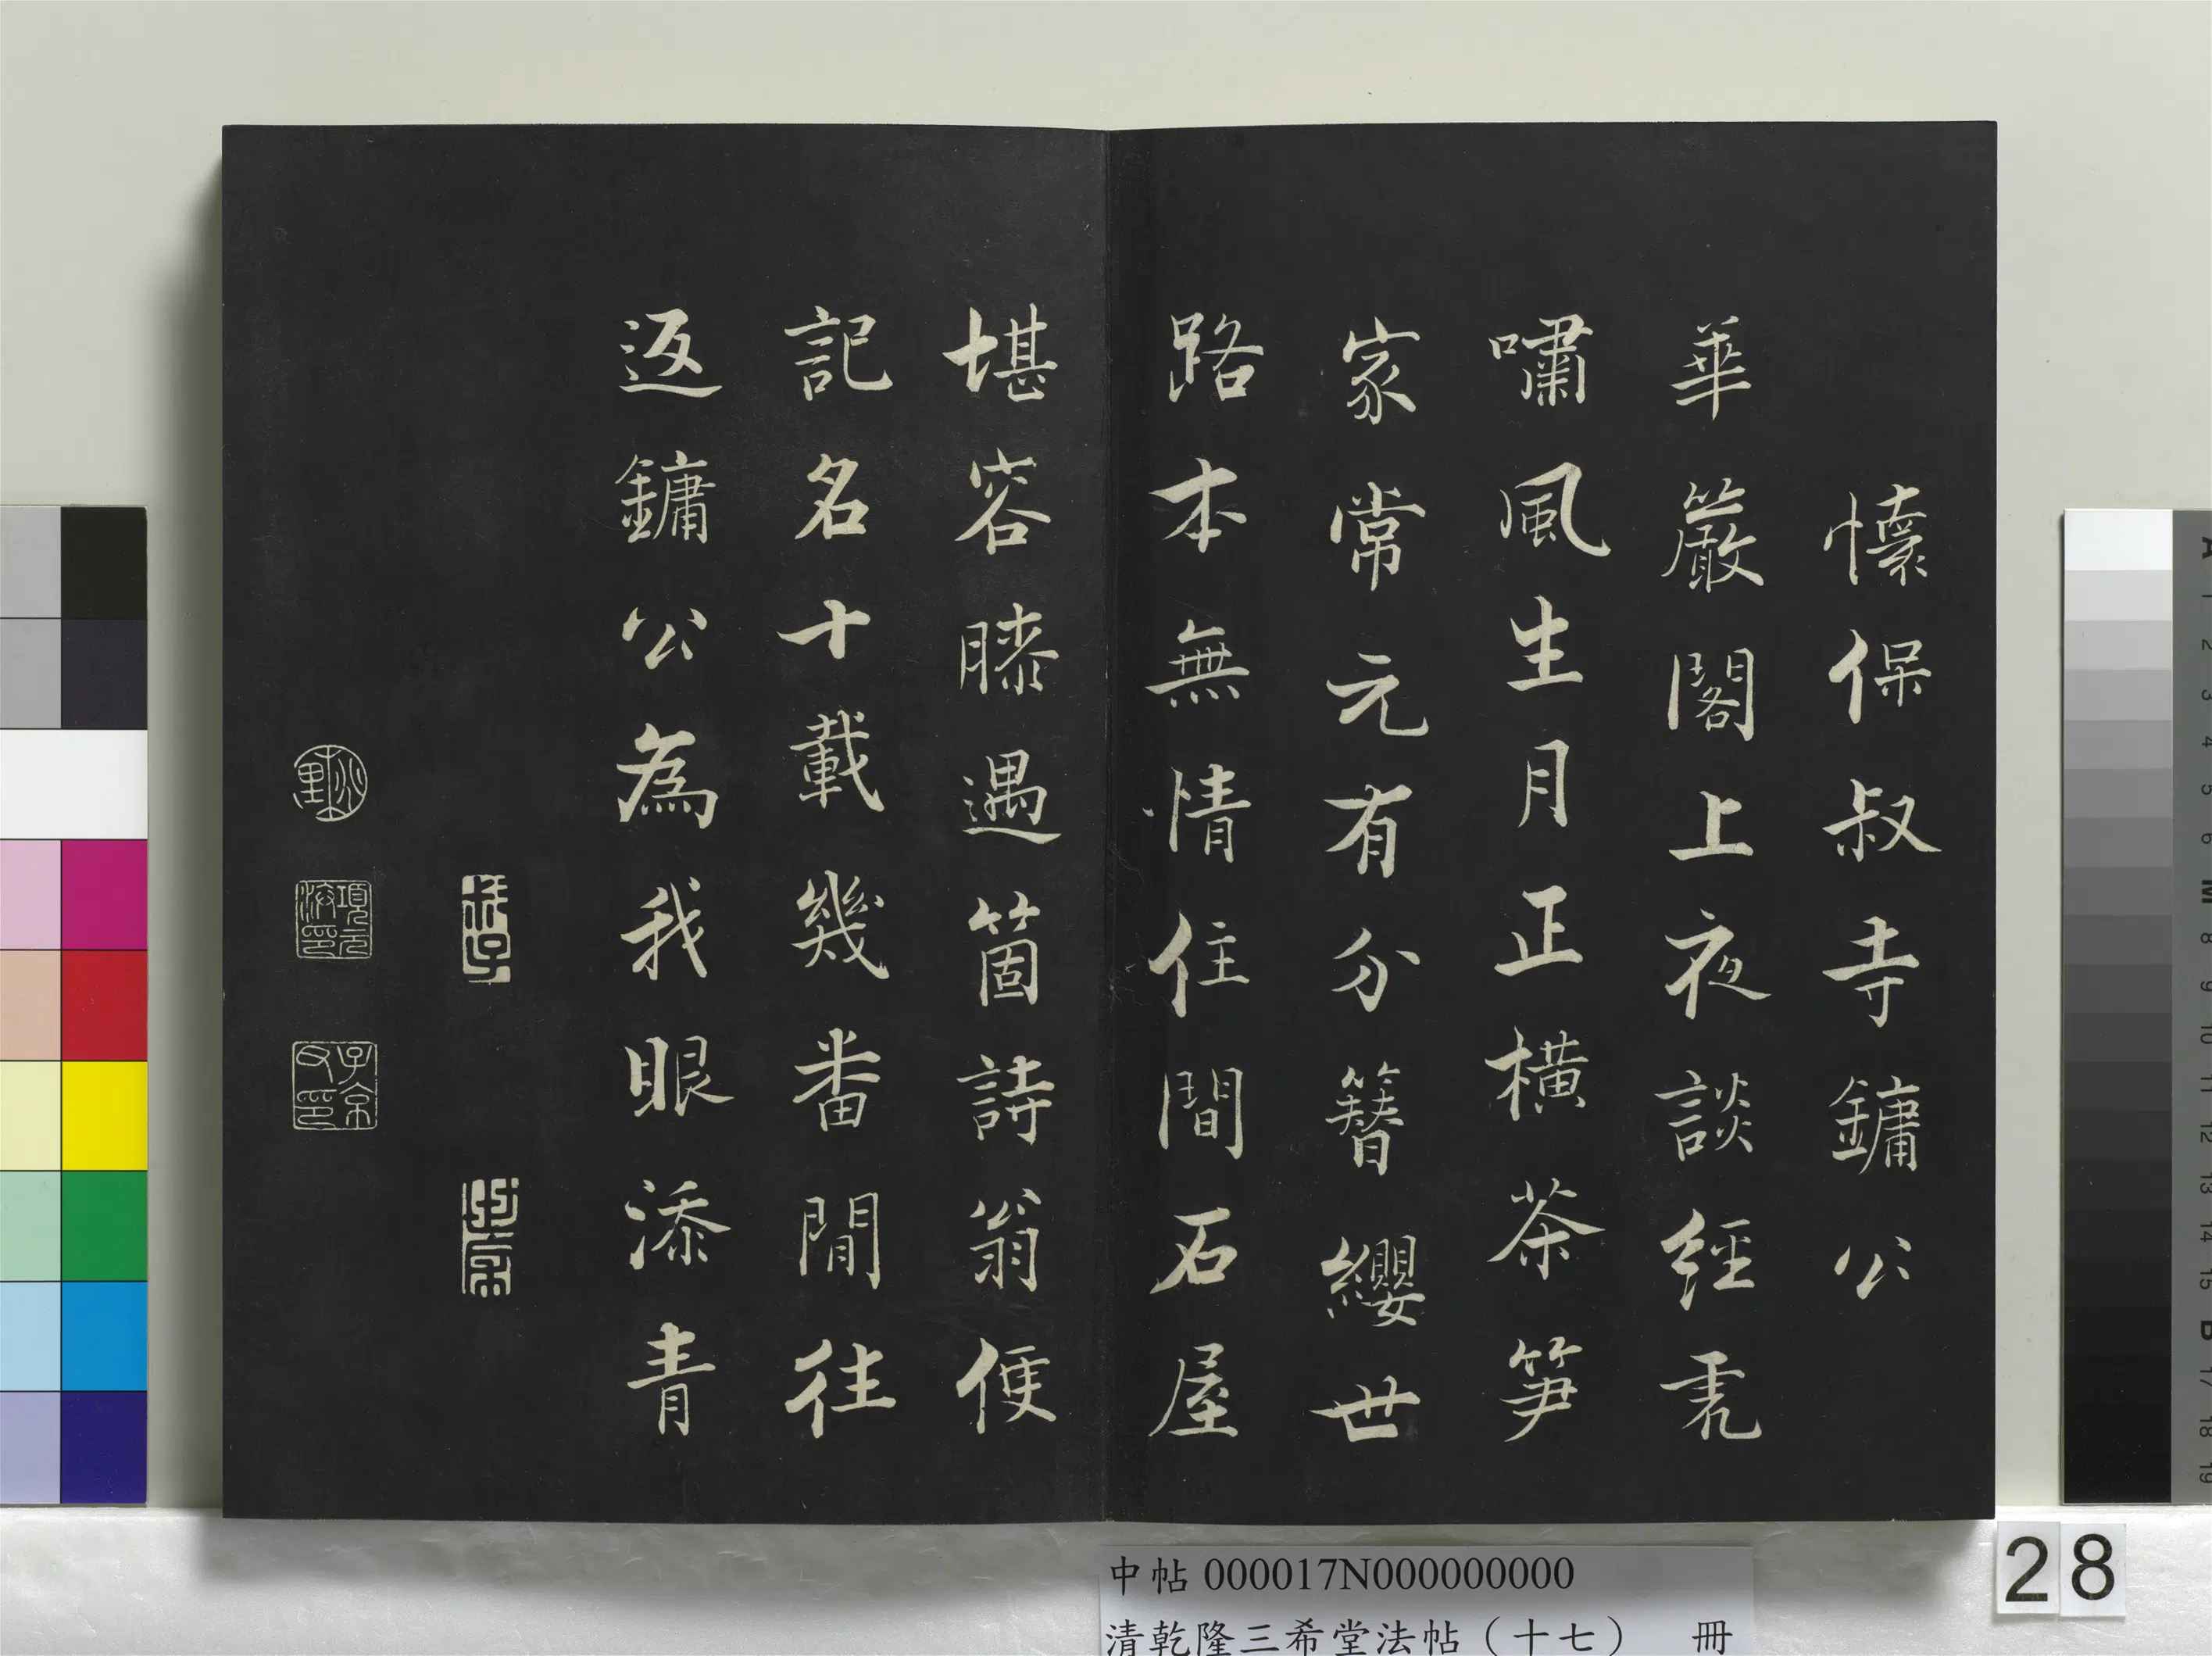 懷保叔寺鏞公
華嚴閣上夜談經虎
嘯風生月正橫茶筍
家常元有分簪纓世
路本無情住間石屋
堪容膝遇箇詩翁便
記名十載幾番閒往
返鏞公為我眼添青
項元
汴印
子京
父印
中帖 000017N000000000
清乾隆三希堂法帖（十七） 冊
28